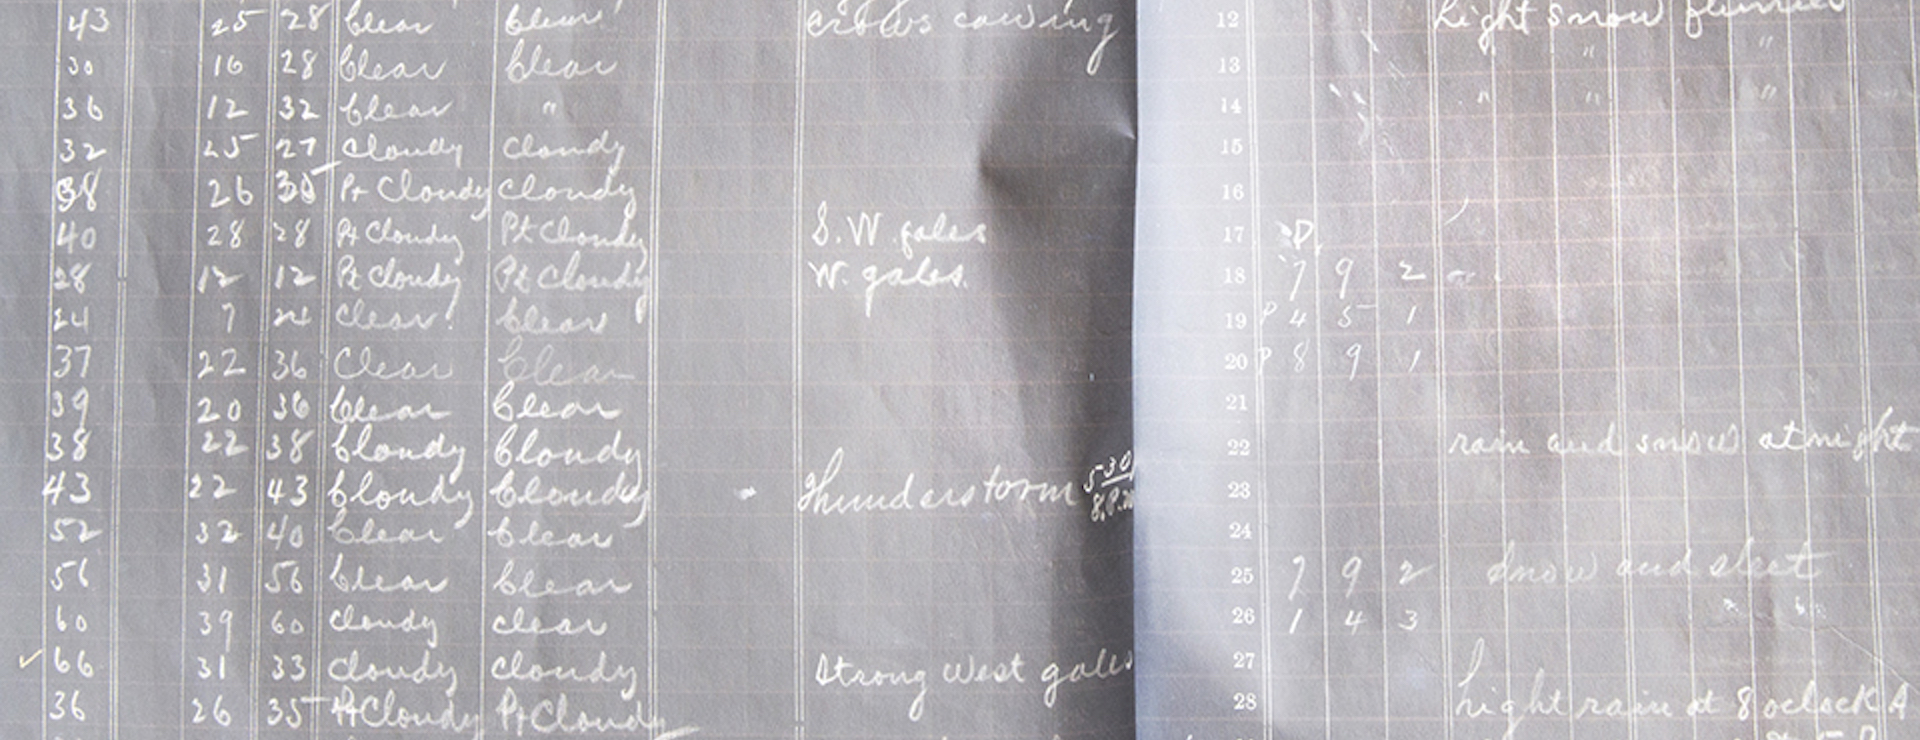 43 25 28 Clear Clear crows cawing
30 16 28 Clear Clear
36 12 32 Clear "
32 25 27 Cloudy Cloudy
38 26 35 Pt Cloudy Cloudy
40 28 28 Pt Cloudy Pt Cloudy S. W. gales
28 12 12 Pt Cloudy Pt Cloudy W. gales.
24 7 24 Clear. Clear
37 22 36 Clear Clear
39 20 36 Clear Clear
38 22 38 Cloudy Cloudy
43 22 43 Cloudy Cloudy Thunderstorm 530
52 32 40 Clear Clear
56 31 56 Clear Clear
60 39 60 Cloudy Clear
✓ 66 31 33 Cloudy Cloudy Strong West gales
36 26 35 Pt Cloudy Pt Cloudy
12 Light snow flurries
13 " "
14 " " "
15
16
17 P.
18 7 9 2
19 P 4 5 1
20 P 8 9 1
21
22 rain and snow at night
23
24
25 7 9 2 Snow and sleet
26 1 4 3
27
28 Light rain at 8 oclock A